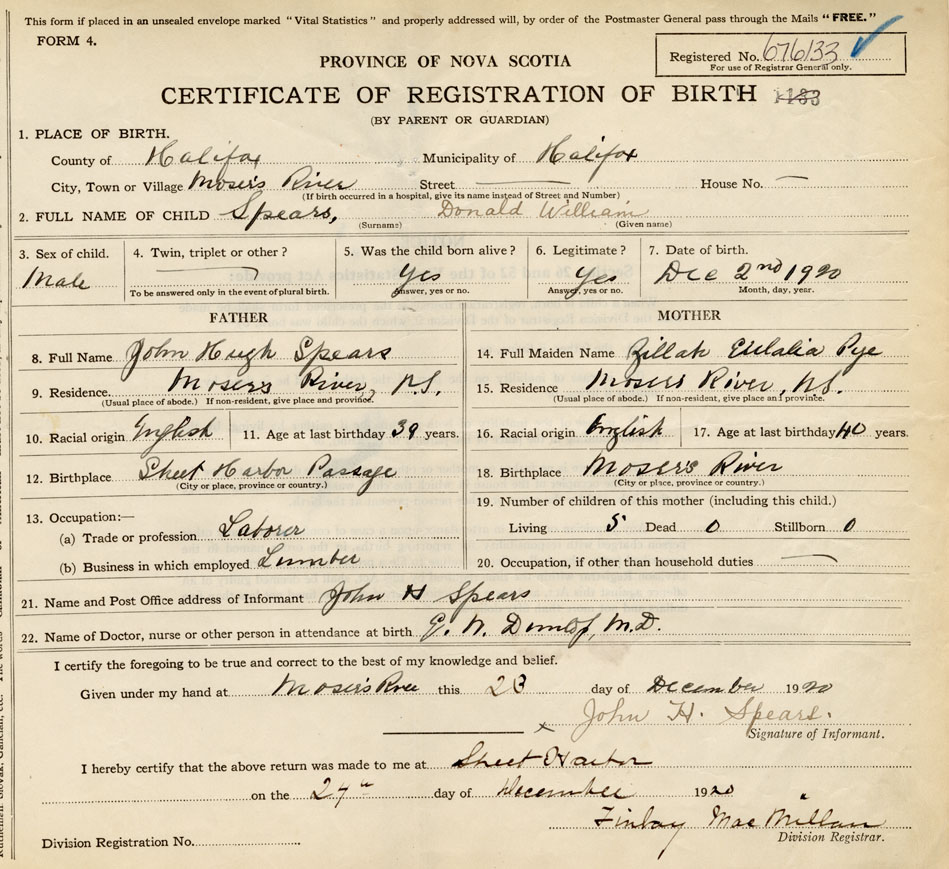 This form if placed in an unsealed envelope marked "Vital Statistics" and properly addressed will, by order of the Postmaster General pass through the Mails "FREE."
FORM 4.
Registered No. 676133
For use of Registrar General only.
PROVINCE OF NOVA SCOTIA
CERTIFICATE OF REGISTRATION OF BIRTH
(BY PARENT OR GUARDIAN)
1. PLACE OF BIRTH.
County of Halifax Municipality of Halifax
City, Town or Village Mosers River Street House No.
(If birth occurred in a hospital, give its name instead of Street and Number)
2. FULL NAME OF CHILD Spears, Donald William
(Surname) (Given name)
3. Sex of child. 4. Twin, triplet or other? 5. Was the child born alive? 6. Legitimate? 7. Date of birth.
Male Yes Yes Dec 2nd 1920
To be answered only in the event of plural birth. Answer, yes or no. Answer, yes or no. Month, day, year.
FATHER
8. Full Name John Hugh Spears
9. Residence. Mosers River, N.S.
(Usual place of abode.) If non-resident, give place and province.
10. Racial origin English 11. Age at last birthday 39 years.
12. Birthplace Sheet Harbor Passage
(City or place, province or country.)
13. Occupation:—
(a) Trade or profession Laborer
(b) Business in which employed Lumber
MOTHER
14. Full Maiden Name Zillah Eulalia Pye
15. Residence Mosers River, N.S.
(Usual place of abode.) If non-resident, give place and province.
16. Racial origin English 17. Age at last birthday 40 years.
18. Birthplace Mosers River
(City or place, province or country.)
19. Number of children of this mother (including this child.)
Living 5 Dead 0 Stillborn 0
20. Occupation, if other than household duties
21. Name and Post Office address of Informant John H Spears
22. Name of Doctor, nurse or other person in attendance at birth E. N. Dunlop, M.D.
I certify the foregoing to be true and correct to the best of my knowledge and belief.
Given under my hand at Mosers River this 23 day of December 1920
x John H. Spears.
Signature of Informant.
I hereby certify that the above return was made to me at Sheet Harbor
on the day of December 1920
Finlay MacMillan
Division Registrar.
Division Registration No.